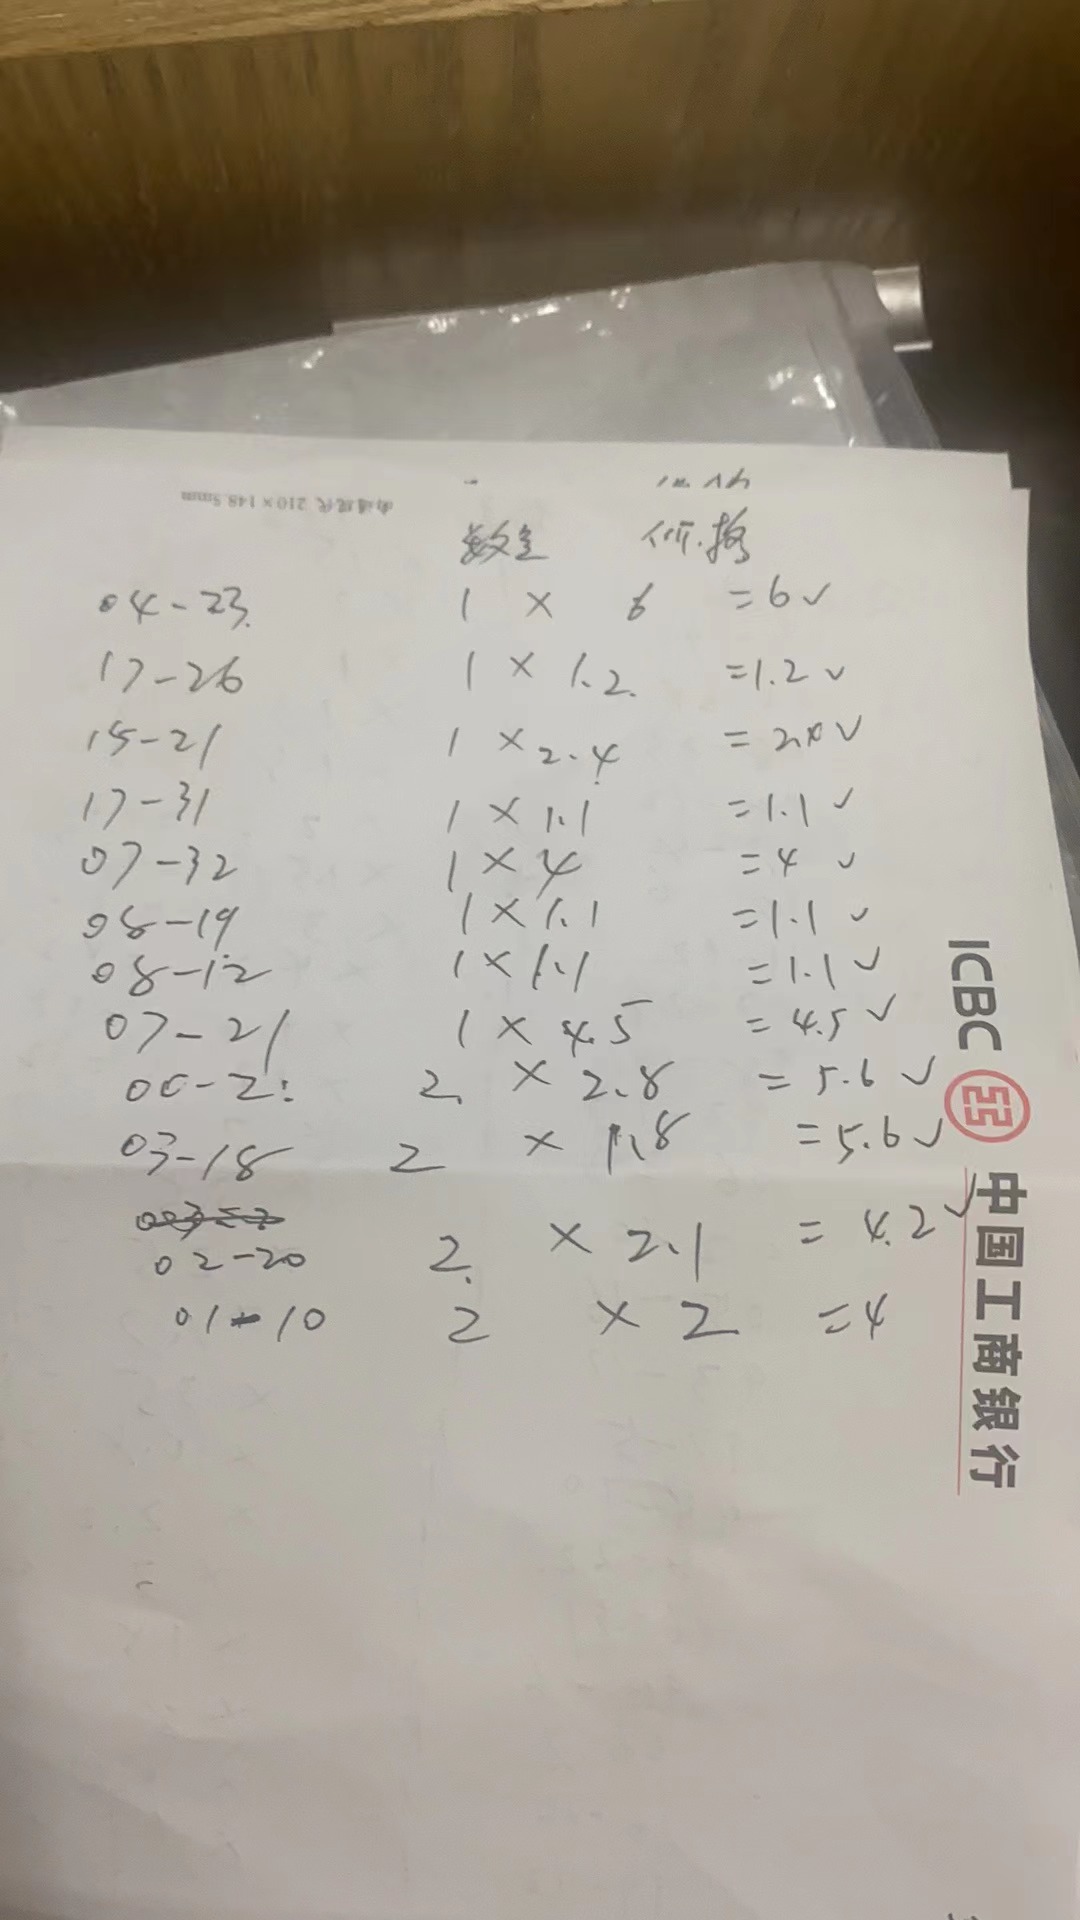 南通现代 210×148.5mm
数量 价格
04-23. 1 × 6 =6✓
17-26 1 × 1.2. =1.2 ✓
15-21 1 ×2.4 = 2.4 ✓
17-31 1 × 1.1 =1.1 ✓
07-32 1 × 4 =4 ✓
08-19 1 × 1.1 =1.1 ✓
08-12 1 × 1.1 =1.1 ✓
07-21 1 × 4.5 = 4.5 ✓
2. × 2.8 = 5.6 ✓
03-18 2 × 1.8 =5.6 ✓
02-20 2. × 2.1 = 4.2 ✓
01-10 2 × 2 =4
ICBC 中国工商银行